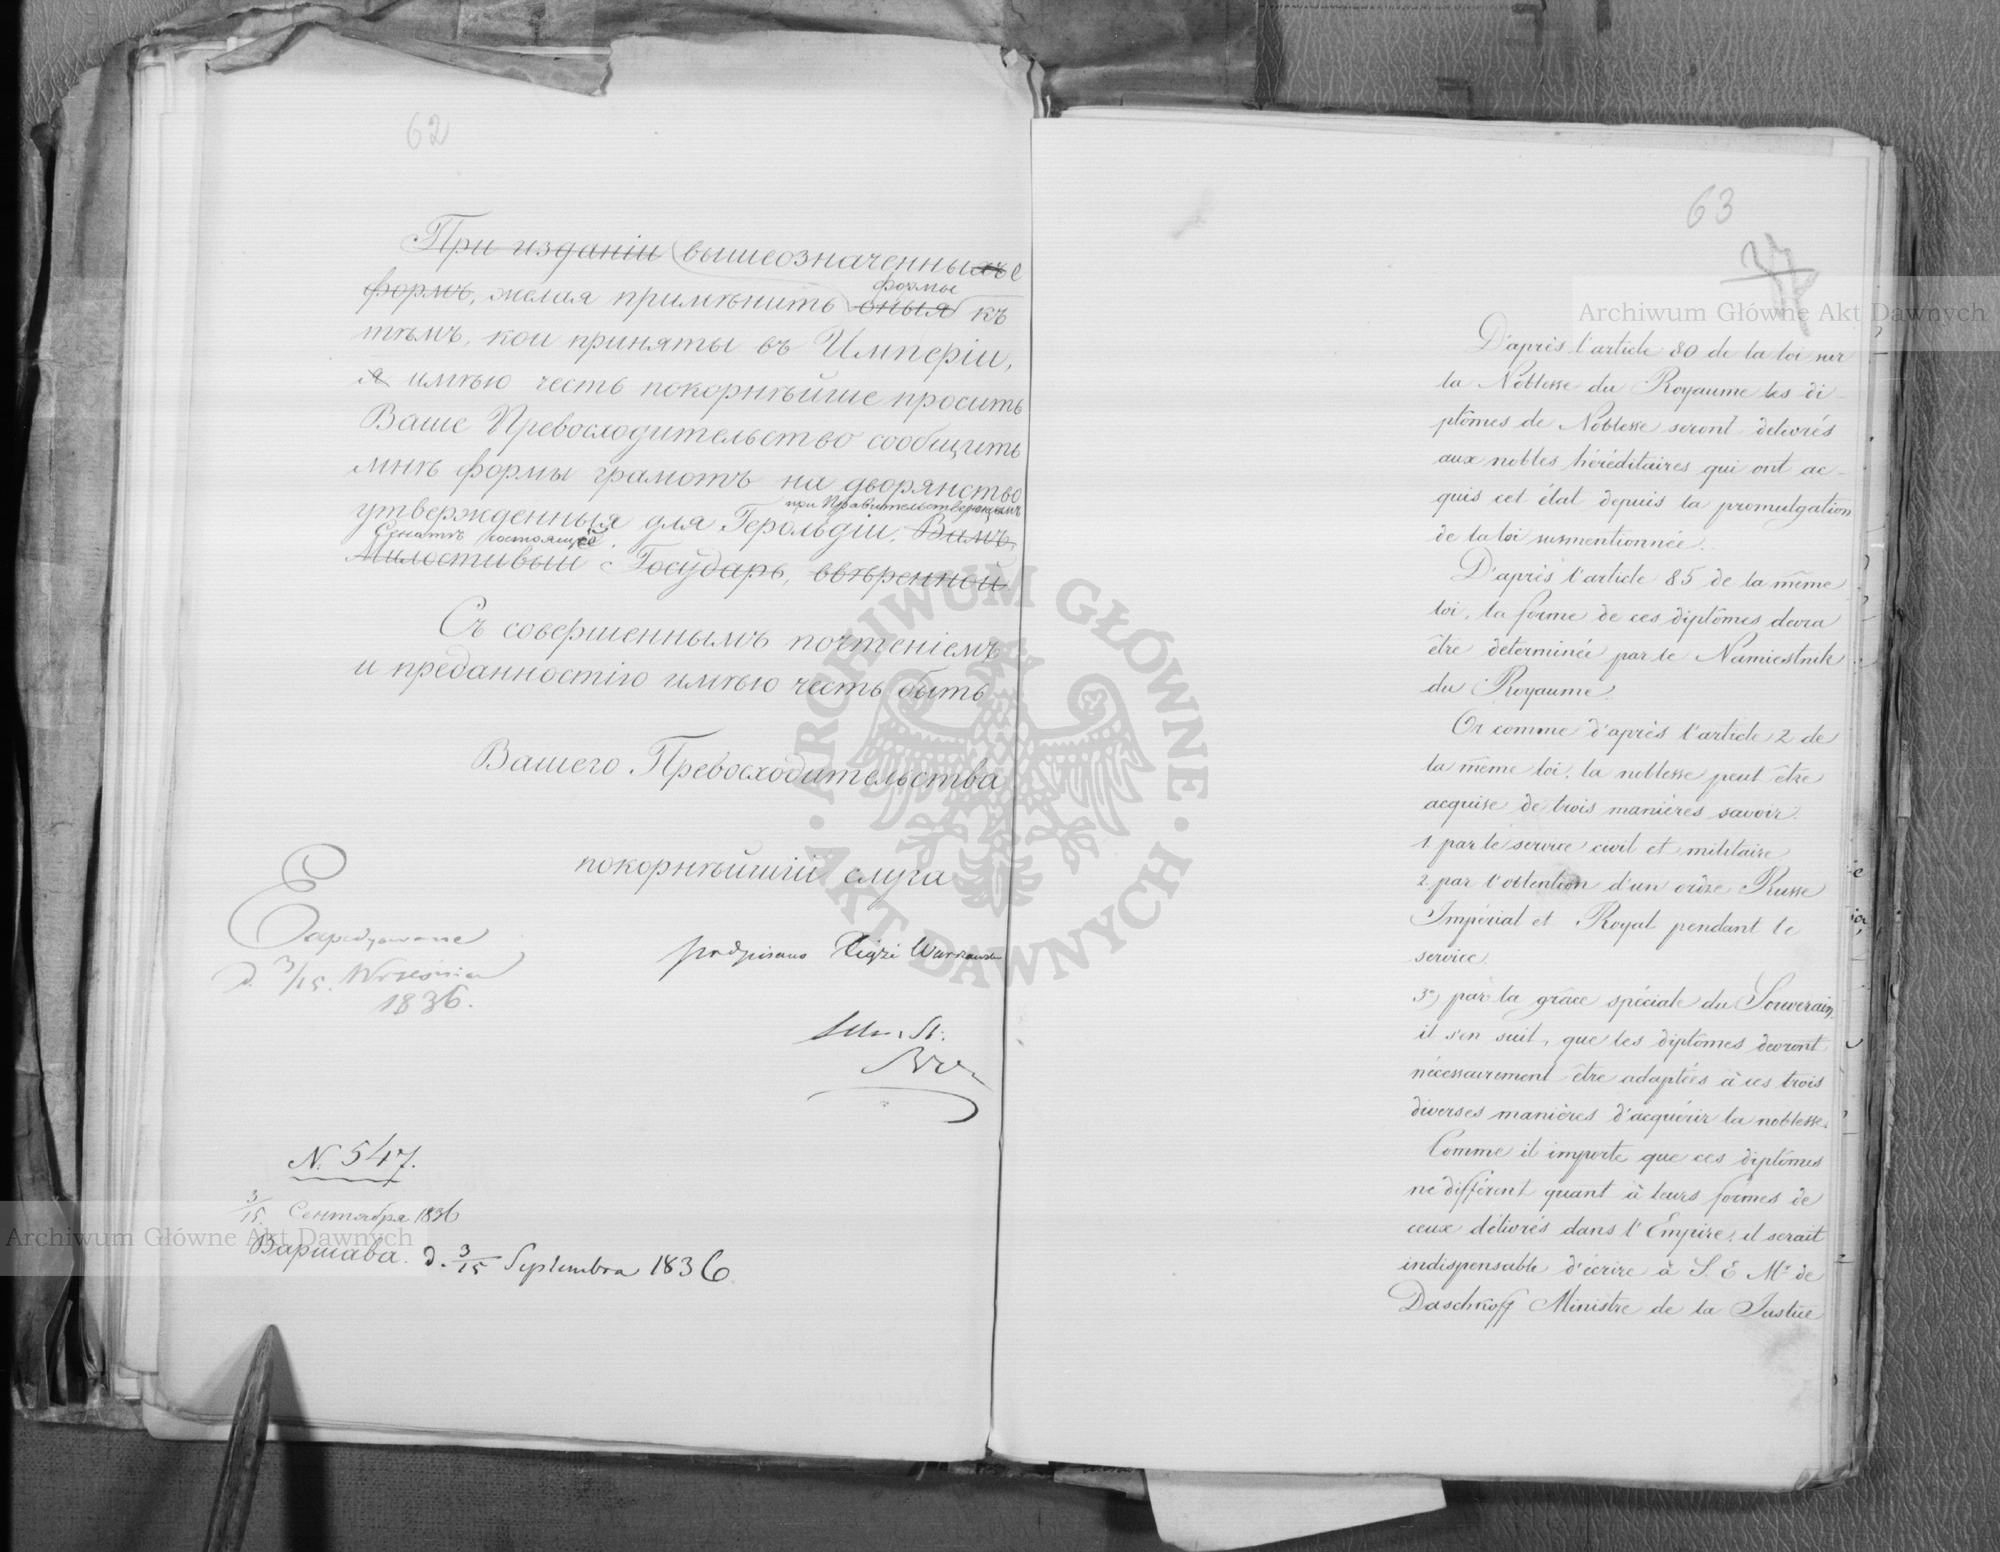 62
При изданіи вышеозначенныхъ е
формы
формъ, желая примѣнить оныя къ
тѣмъ, кои приняты въ Имперіи,
я имѣю честь покорнѣйше просить
Ваше Превосходительство сообщить
мнѣ формы грамотъ на дворянство
при Правительствующемъ
утвержденныя для Герольдіи, Вамъ,
Сенатѣ состоящей.
Милостивый Государь, ввѣренной
Съ совершеннымъ почтеніемъ
и преданностію имѣю честь быть
Вашего Превосходительства
покорнѣйшій слуга
podpisano Xiąże Warszawski
Expedyowane
d. 3/15. Września
1836.
N. 547.
3/15. Сентября 1836
Варшава. d. 3/15 Septembra 1836.
63
D'après l'article 80 de la loi sur
la Noblesse du Royaume les di-
plômes de Noblesse seront délivrés
aux nobles héréditaires qui ont ac-
quis cet état depuis la promulgation
de la loi susmentionnée.
D'après l'article 85 de la même
loi, la forme de ces diplômes devra
être déterminée par le Namiestnik
du Royaume.
Or comme d'après l'article 2 de
la même loi, la noblesse peut être
acquise de trois manières savoir:
1. par le service civil et militaire
2. par l'obtention d'un ordre Russe
Impérial et Royal pendant le
service.
3°) par la grâce spéciale du Souverain,
il s'en suit, que les diplômes devront
nécessairement être adaptées à ces trois
diverses manières d'acquérir la noblesse.
Comme il importe que ces diplômes
ne différent quant à leurs formes de
ceux délivrés dans l'Empire, il serait
indispensable d'écrire à S. E. Mr de
Daschkoff Ministre de la Justice
Archiwum Główne Akt Dawnych
Archiwum Główne Akt Dawnych
ARCHIWUM GŁÓWNE · AKT DAWNYCH ·